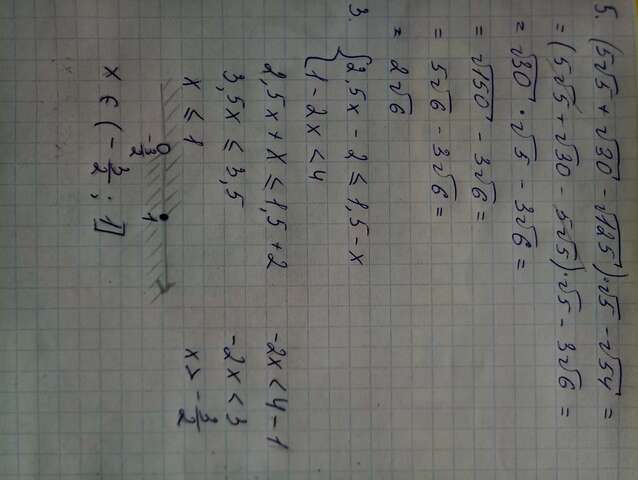 5. (5√5 + √30 - √125)·√5 - √54 =
= (5√5 + √30 - 5√5)·√5 - 3√6 =
= √30 · √5 - 3√6 =
= √150 - 3√6 =
= 5√6 - 3√6 =
= 2√6
3. { 2,5x - 2 ≤ 1,5 - x
1 - 2x < 4
2,5x + x ≤ 1,5 + 2
3,5x ≤ 3,5
x ≤ 1
-2x < 4 - 1
-2x < 3
x > -3/2
-3/2 1
x ∈ (-3/2 ; 1]